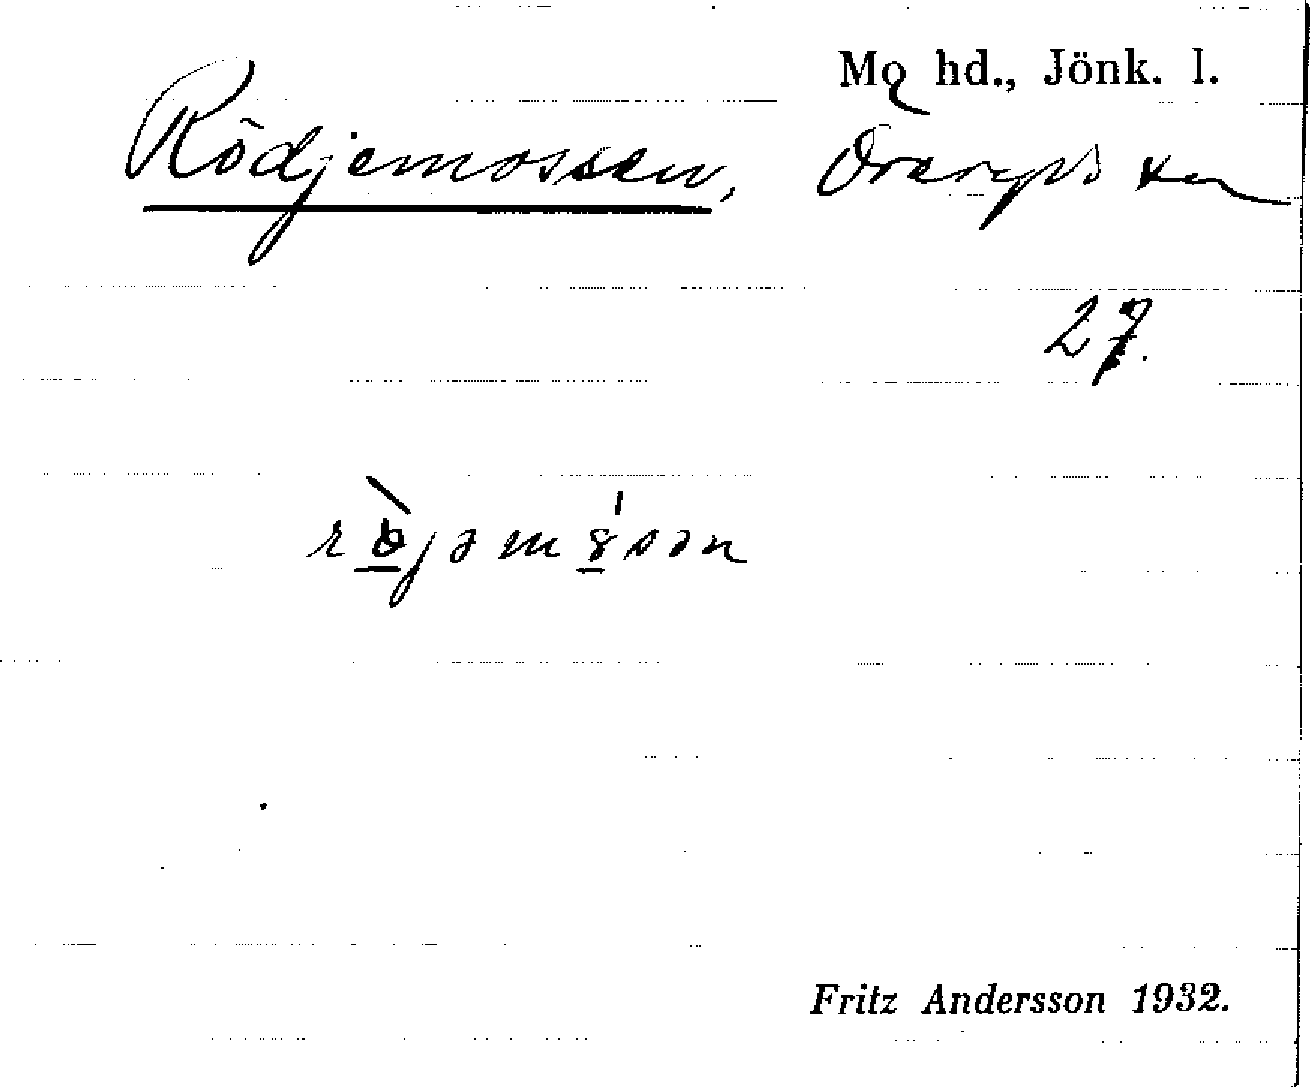 Mo hd., Jönk. l.
Rödjemossen, Öreryds sn
27.
rö̀jəmósən
Fritz Andersson 1932.